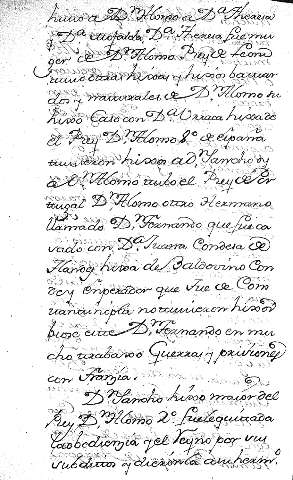 huuo a D.ⁿ Alonso a D.ª Theresa
y D.ª D.ª Theresa fue mu
ger de D.ⁿ Alonso Rey de Leon
tuuo otras hixas y hixos bastar
dos y naturales de D.ⁿ Alonso su
hixo Caso con D.ª Vrraca hixa de
el Rey D.ⁿ Alonso 8.º de españa
tuuieron hixos a D.ⁿ Sancho y
a D.ⁿ Alonso tubo el Rey de Por
tugal D.ⁿ Alonso otro Hermano
llamado D.ⁿ Fernando que fue ca
sado con D.ª Juana Condesa de
Flandes hixa de Baldovino Con
de y enperador que fue de Cons
tantinopla no tuuieron hixos
este D.ⁿ Fernando en mu
chos trabaxos Guerras y prisiones
con Franzia.
D.ⁿ Sancho hixo maior del
Rey D.ⁿ Alonso 2.º fuele quitada
la obediencia y el Reyno por sus
subditos y dieronla a su herm.º